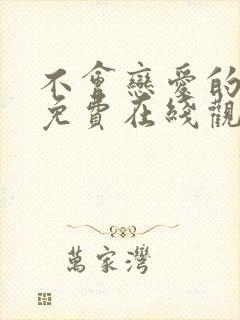 不會戀愛的
免費在綫觀
萬家灣